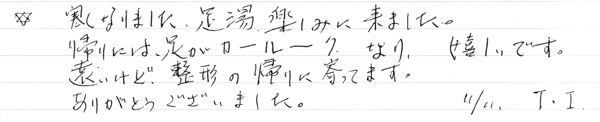 ☆ 寒くなりました、足湯、楽しみに来ました。
帰りには、足がカールーク なり、嬉しいです。
遠いけど、整形の帰りに寄ってます。
ありがとうございました。 11/11. T・I.